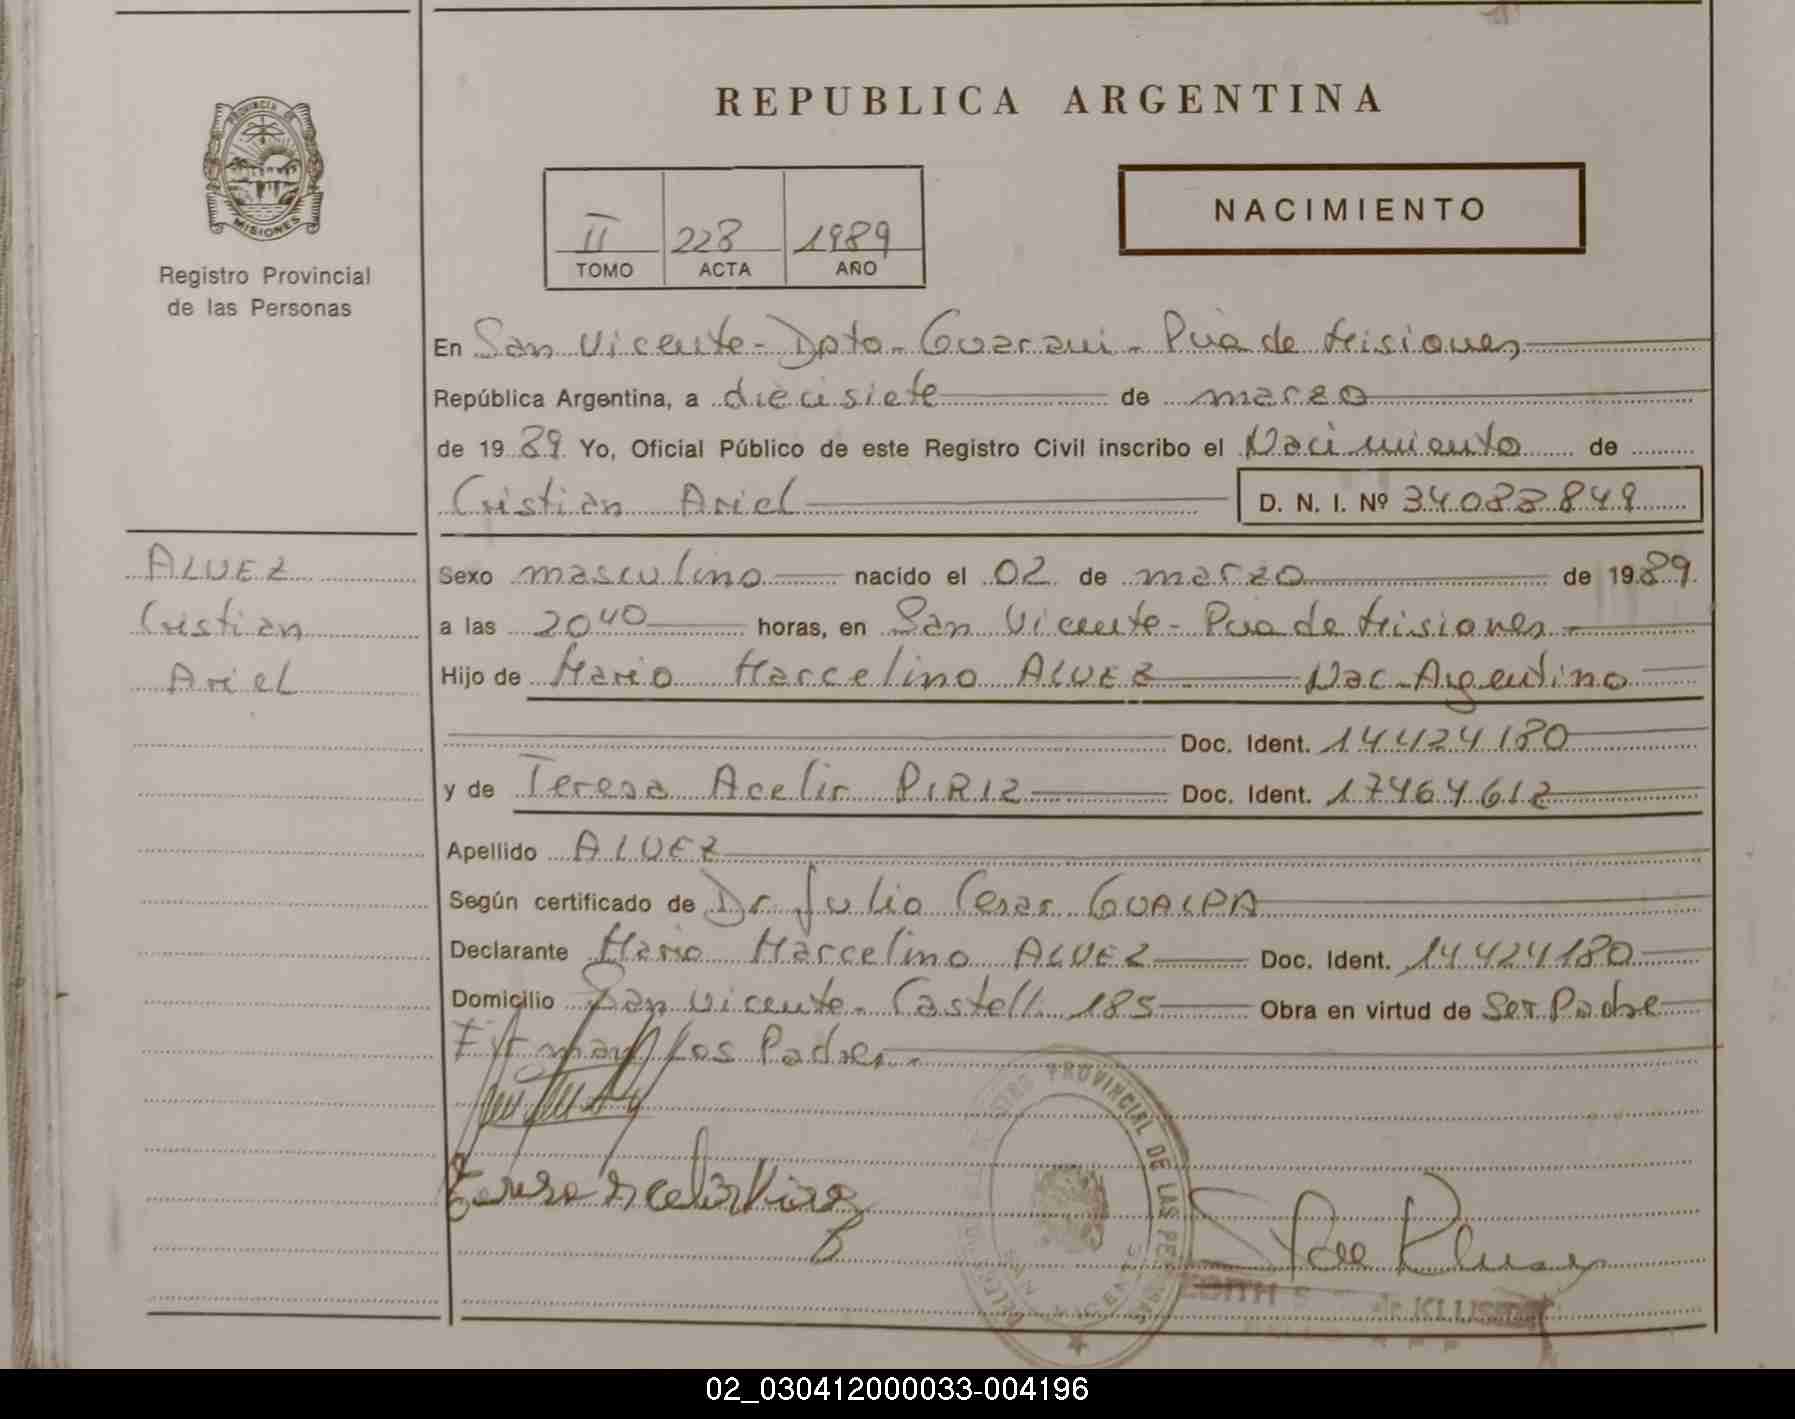 REPUBLICA ARGENTINA
PROVINCIA DE
MISIONES
Registro Provincial
de las Personas
II 228 1989
TOMO ACTA AÑO
NACIMIENTO
En San Vicente - Dpto. Guarani - Pcia de Misiones
República Argentina, a diecisiete de marzo
de 19 89 Yo, Oficial Público de este Registro Civil inscribo el Nacimiento de
Cristian Ariel D. N. I. Nº
ALVEZ
Cristian
Ariel
Sexo masculino nacido el 02 de marzo de 1989.
a las 20 40 horas, en San Vicente - Pcia de Misiones
Hijo de Mario Marcelino ALVEZ Nac. Argentino
Doc. Ident. 14424180
y de Teresa Acelir PIRIZ Doc. Ident. 17464612
Apellido ALVEZ
Según certificado de Dr Julio Cesar GUALPA
Declarante Mario Marcelino ALVEZ Doc. Ident. 14424180
Domicilio San Vicente. Castelli 185 Obra en virtud de Ser Padre
Firman los Padres.
PROVINCIAL DE LAS
SAN VICENTE
02_030412000033-004196